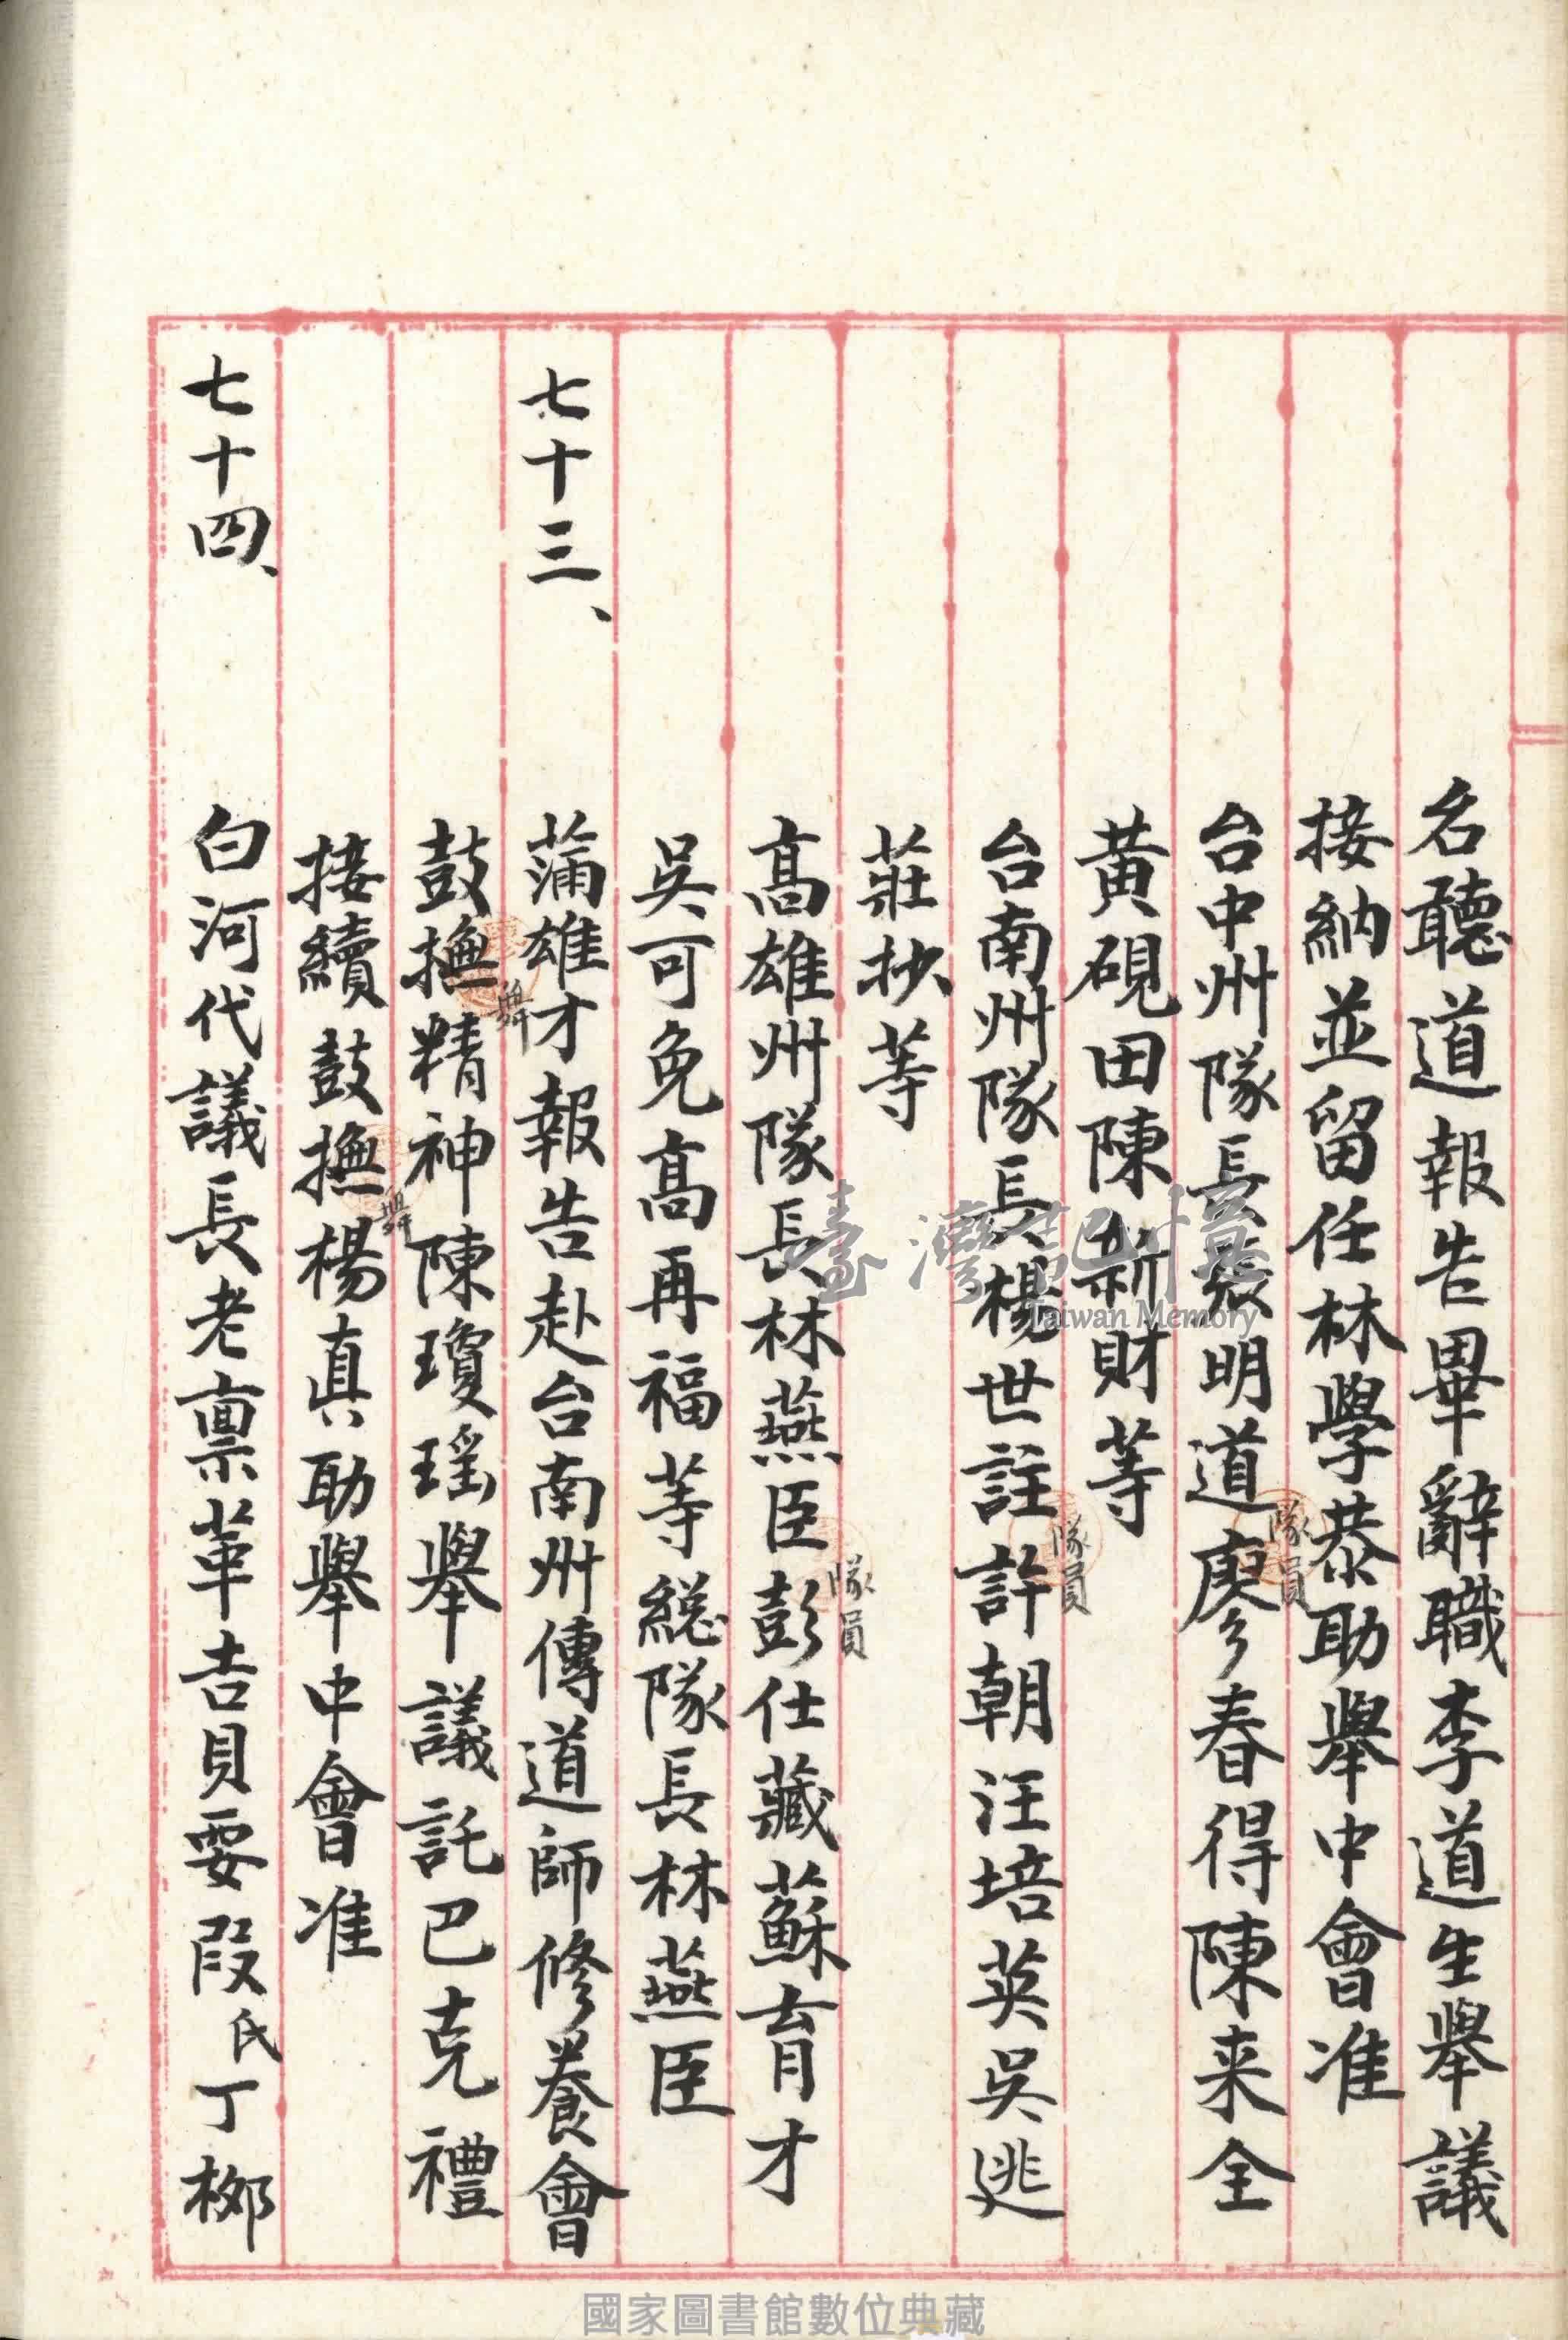 名聽道報告畢辭職李道生舉議
接納並留任林學恭助舉中會准
台中州隊長張明道隊員廖春得陳来全
黃硯田陳新財等
台南州隊長楊世註隊員許朝汪培英吳逃
莊抄等
高雄州隊長林燕臣隊員彭仕藏蘇育才
吳可免高再福等總隊長林燕臣
七十三、蒲雄才報告赴台南州傳道師修養會
鼓撫舞精神陳瓊瑤舉議託巴克禮
接續鼓撫舞楊真助舉中會准
七十四、白河代議長老禀革吉貝耍段氏丁梛
臺灣記憶
Taiwan Memory
國家圖書館數位典藏